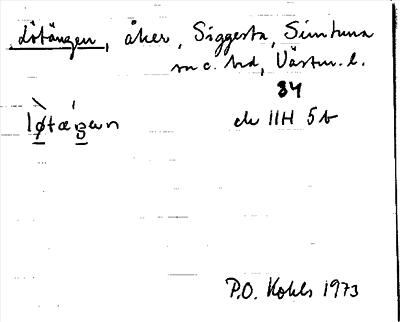 Lötängen, åker, Siggesta, Simtuna
sn o. hd, Västm. l.
84
løtæŋen
ek 11H 5b
P.O. Kohls 1973